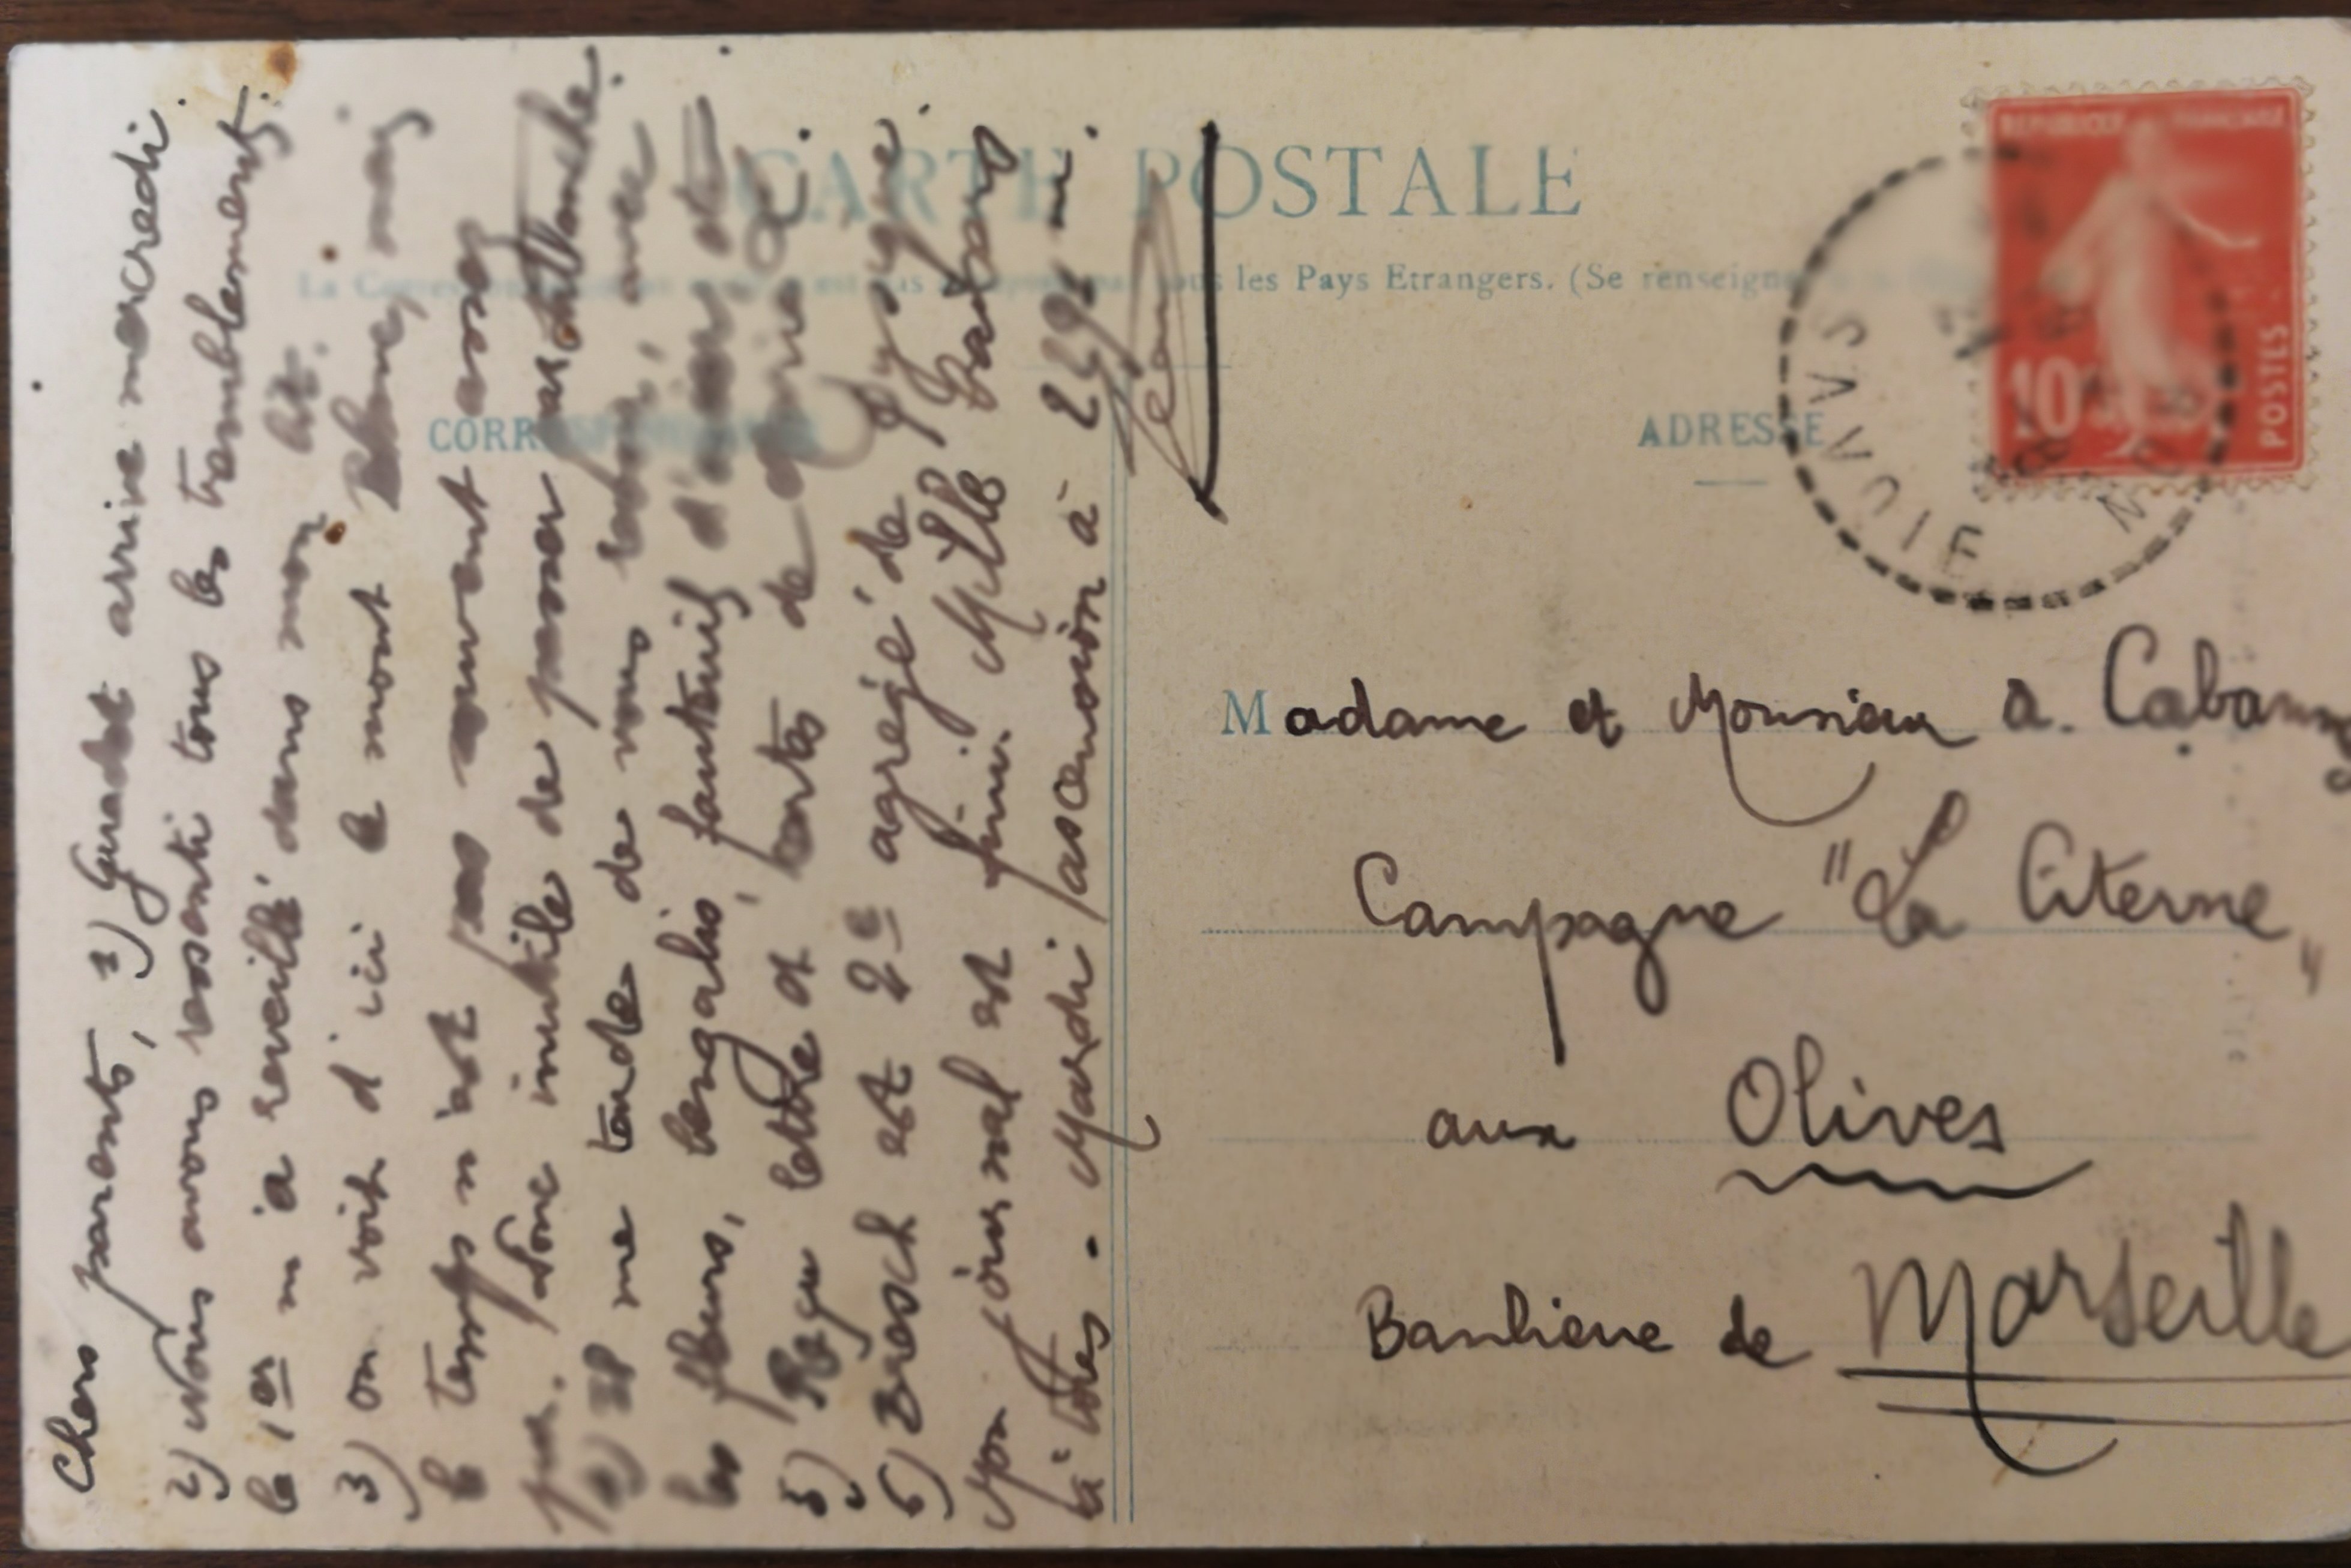 CARTE POSTALE
les Pays Etrangers. (Se renseign
ADRESSE
REPUBLIQUE FRANCAISE
10
POSTES
Chers parents, 1) Guradet arrive mercredi.
2) Nous avons ressenti tous les tremblements.
le 1er m'a réveillé dans mon lit.
3) on voit d'ici le mont Blanc, mais
le temps n'est pas souvent assez
pur. Donc inutile de passer
4) Il me tarde de vous
les fleurs, bengalis, fauteuils d'osier et
5) Reçu lettre et cartes de
6) Bresch est 2e agrégé de
Mon journal est fini. Mille baisers
à tous. Mardi ascension à 249 m.
Jean
Madame et Monsieur A. Cabanny
Campagne "La Citerne"
aux Olives
Banlieue de Marseille
SAVOIE